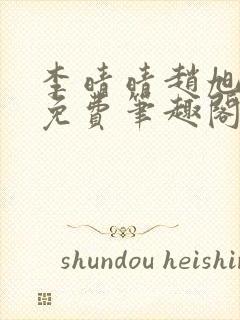 李晴晴趙旭
免費筆趣閣
shundou heishin